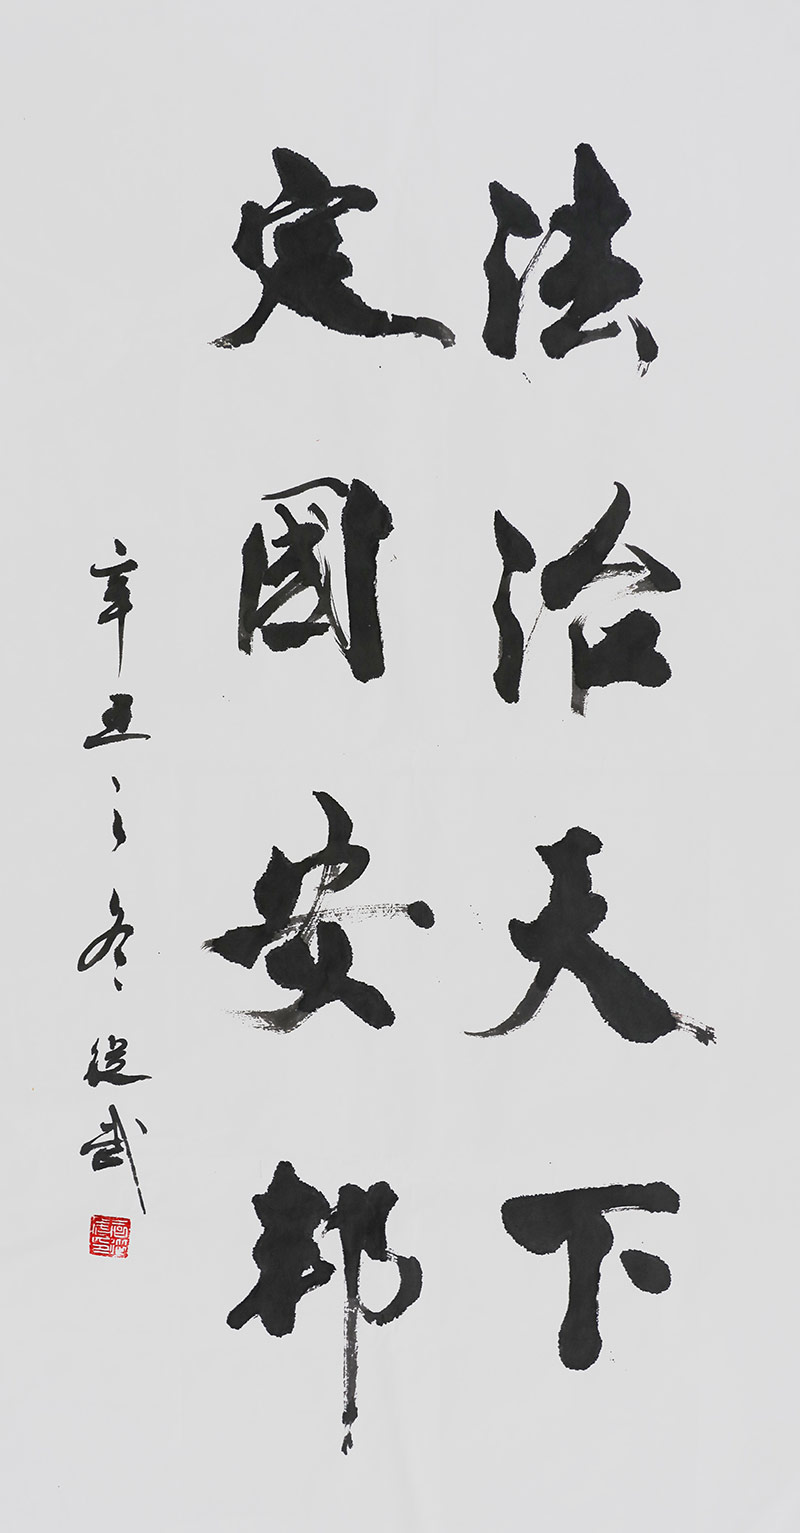 法治天下
定國安邦
辛丑之冬從武